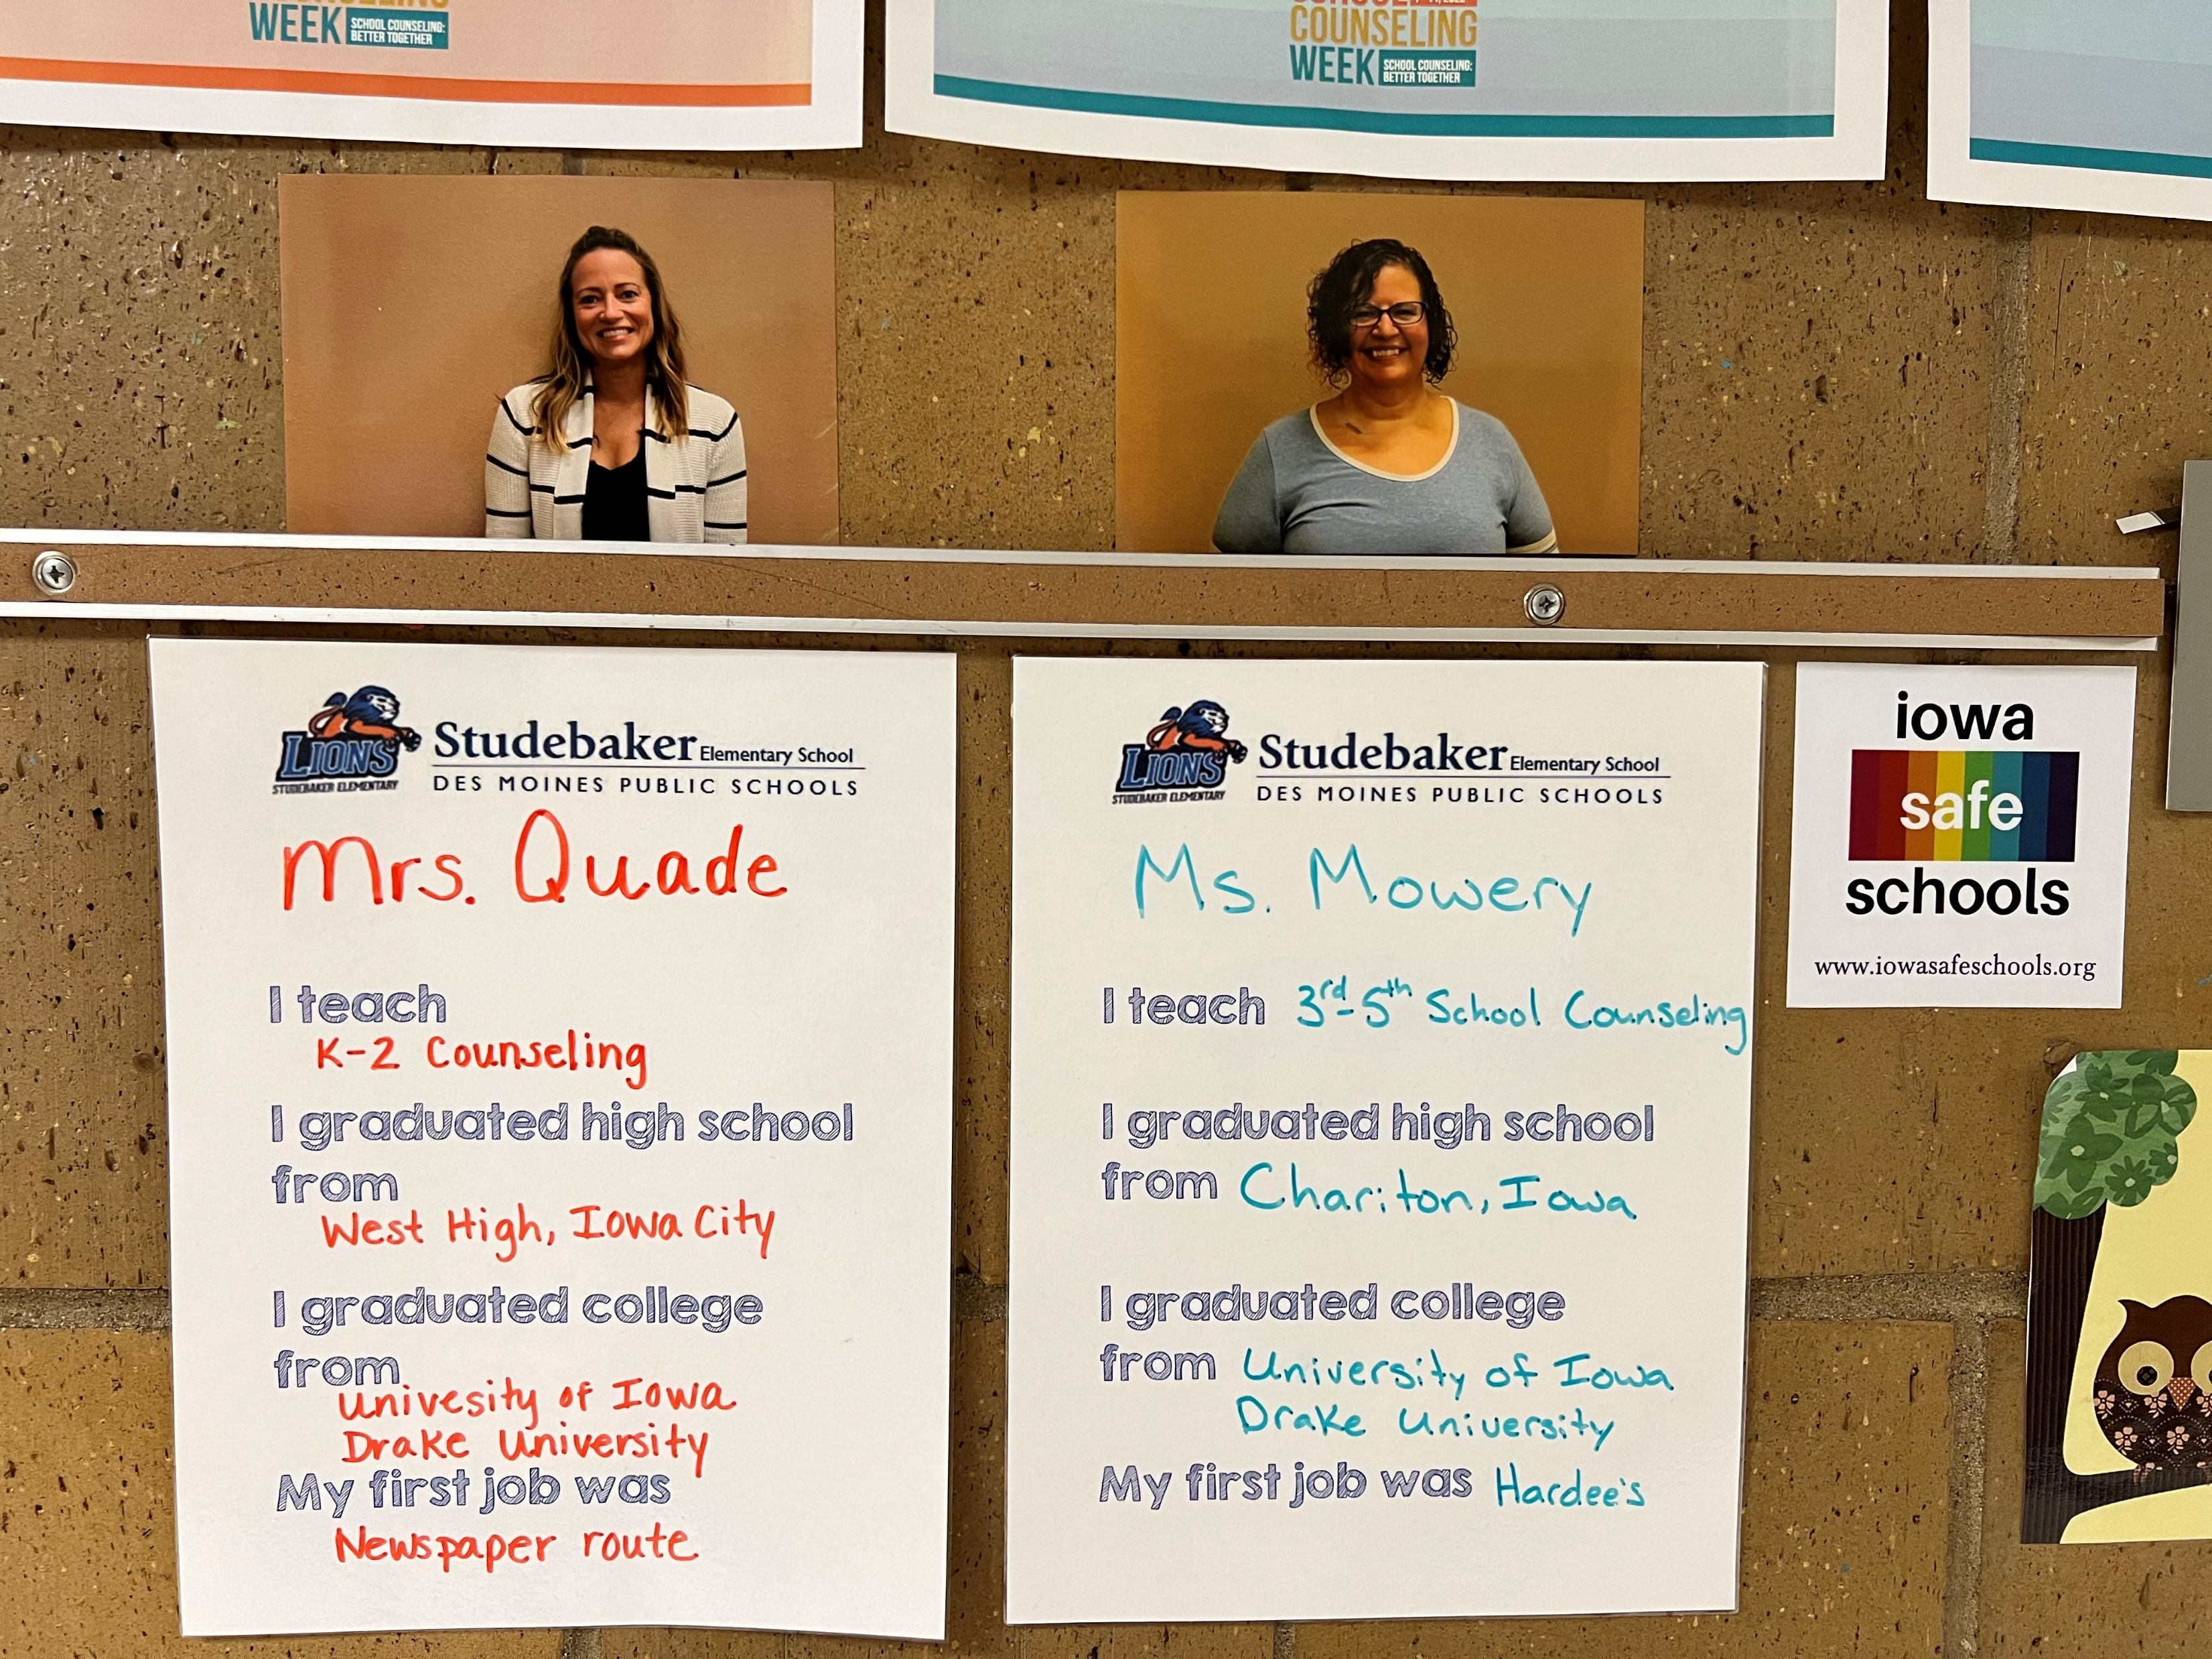 WEEK SCHOOL COUNSELING:
BETTER TOGETHER
COUNSELING
WEEK SCHOOL COUNSELING:
BETTER TOGETHER
LIONS
STUDEBAKER ELEMENTARY
Studebaker Elementary School
DES MOINES PUBLIC SCHOOLS
Mrs. Quade
I teach
K-2 Counseling
I graduated high school
from
West High, Iowa City
I graduated college
from
Univesity of Iowa
Drake University
My first job was
Newspaper route
LIONS
STUDEBAKER ELEMENTARY
Studebaker Elementary School
DES MOINES PUBLIC SCHOOLS
Ms. Mowery
I teach 3rd-5th School Counseling
I graduated high school
from Chariton, Iowa
I graduated college
from University of Iowa
Drake University
My first job was Hardee's
iowa
safe
schools
www.iowasafeschools.org